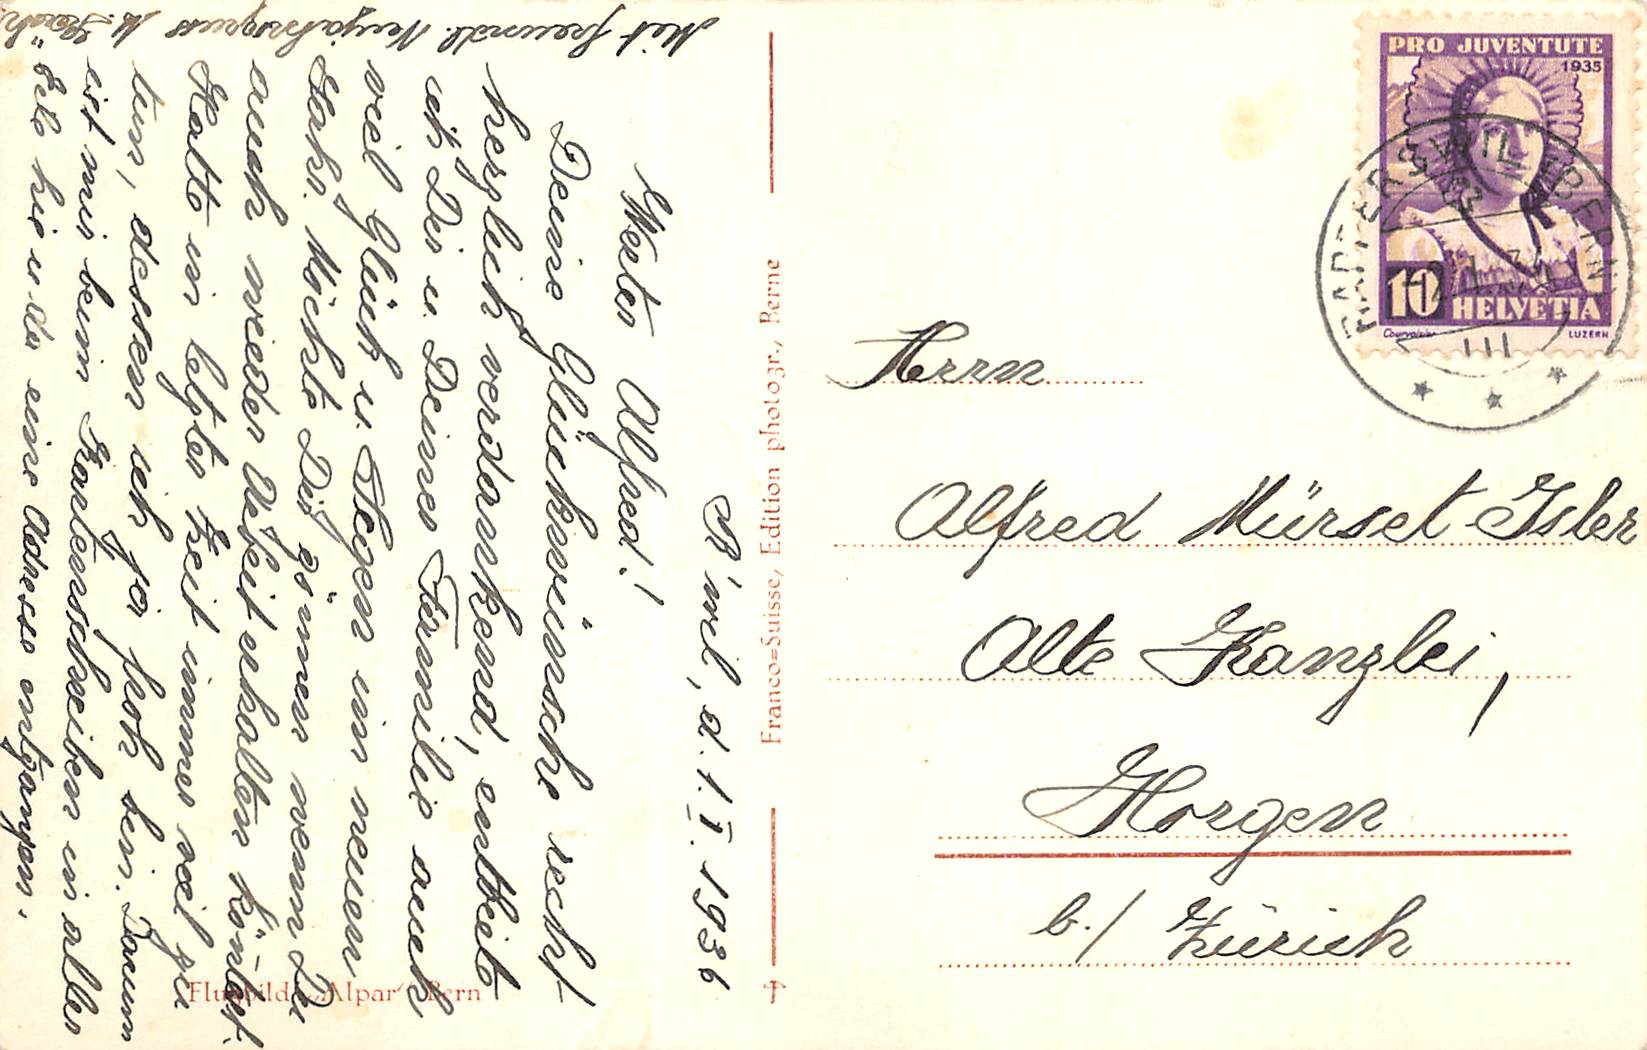 R'wil, d. 1. I. 1936
Werter Alfred!
Deine Glückwünsche recht
herzlich verdankend, entbiet
ich Dir u. Deiner Familie auch
viel Glück u. Segen im neuen
Jahr. Möchte Dir gönnen wenn Du
auch wieder Arbeit erhalten könntest.
Hatte in letzter Zeit immer viel zu
tun, dessen ich ja froh bin. Darum
ist mir beim Kartenschreiben in aller
Eile hie u. da eine Adresse entgangen.
Mit freundl. Neujahrsgruss
Franco=Suisse, Edition photogr., Berne
Flugbild „Alpar" Bern
PRO JUVENTUTE
1935
10
HELVETIA
Courvoisier
LUZERN
RAPPERSWIL (BERN)
III
Herrn
Alfred Mürset-Isler
Alte Kanzlei,
Horgen
b./ Zürich